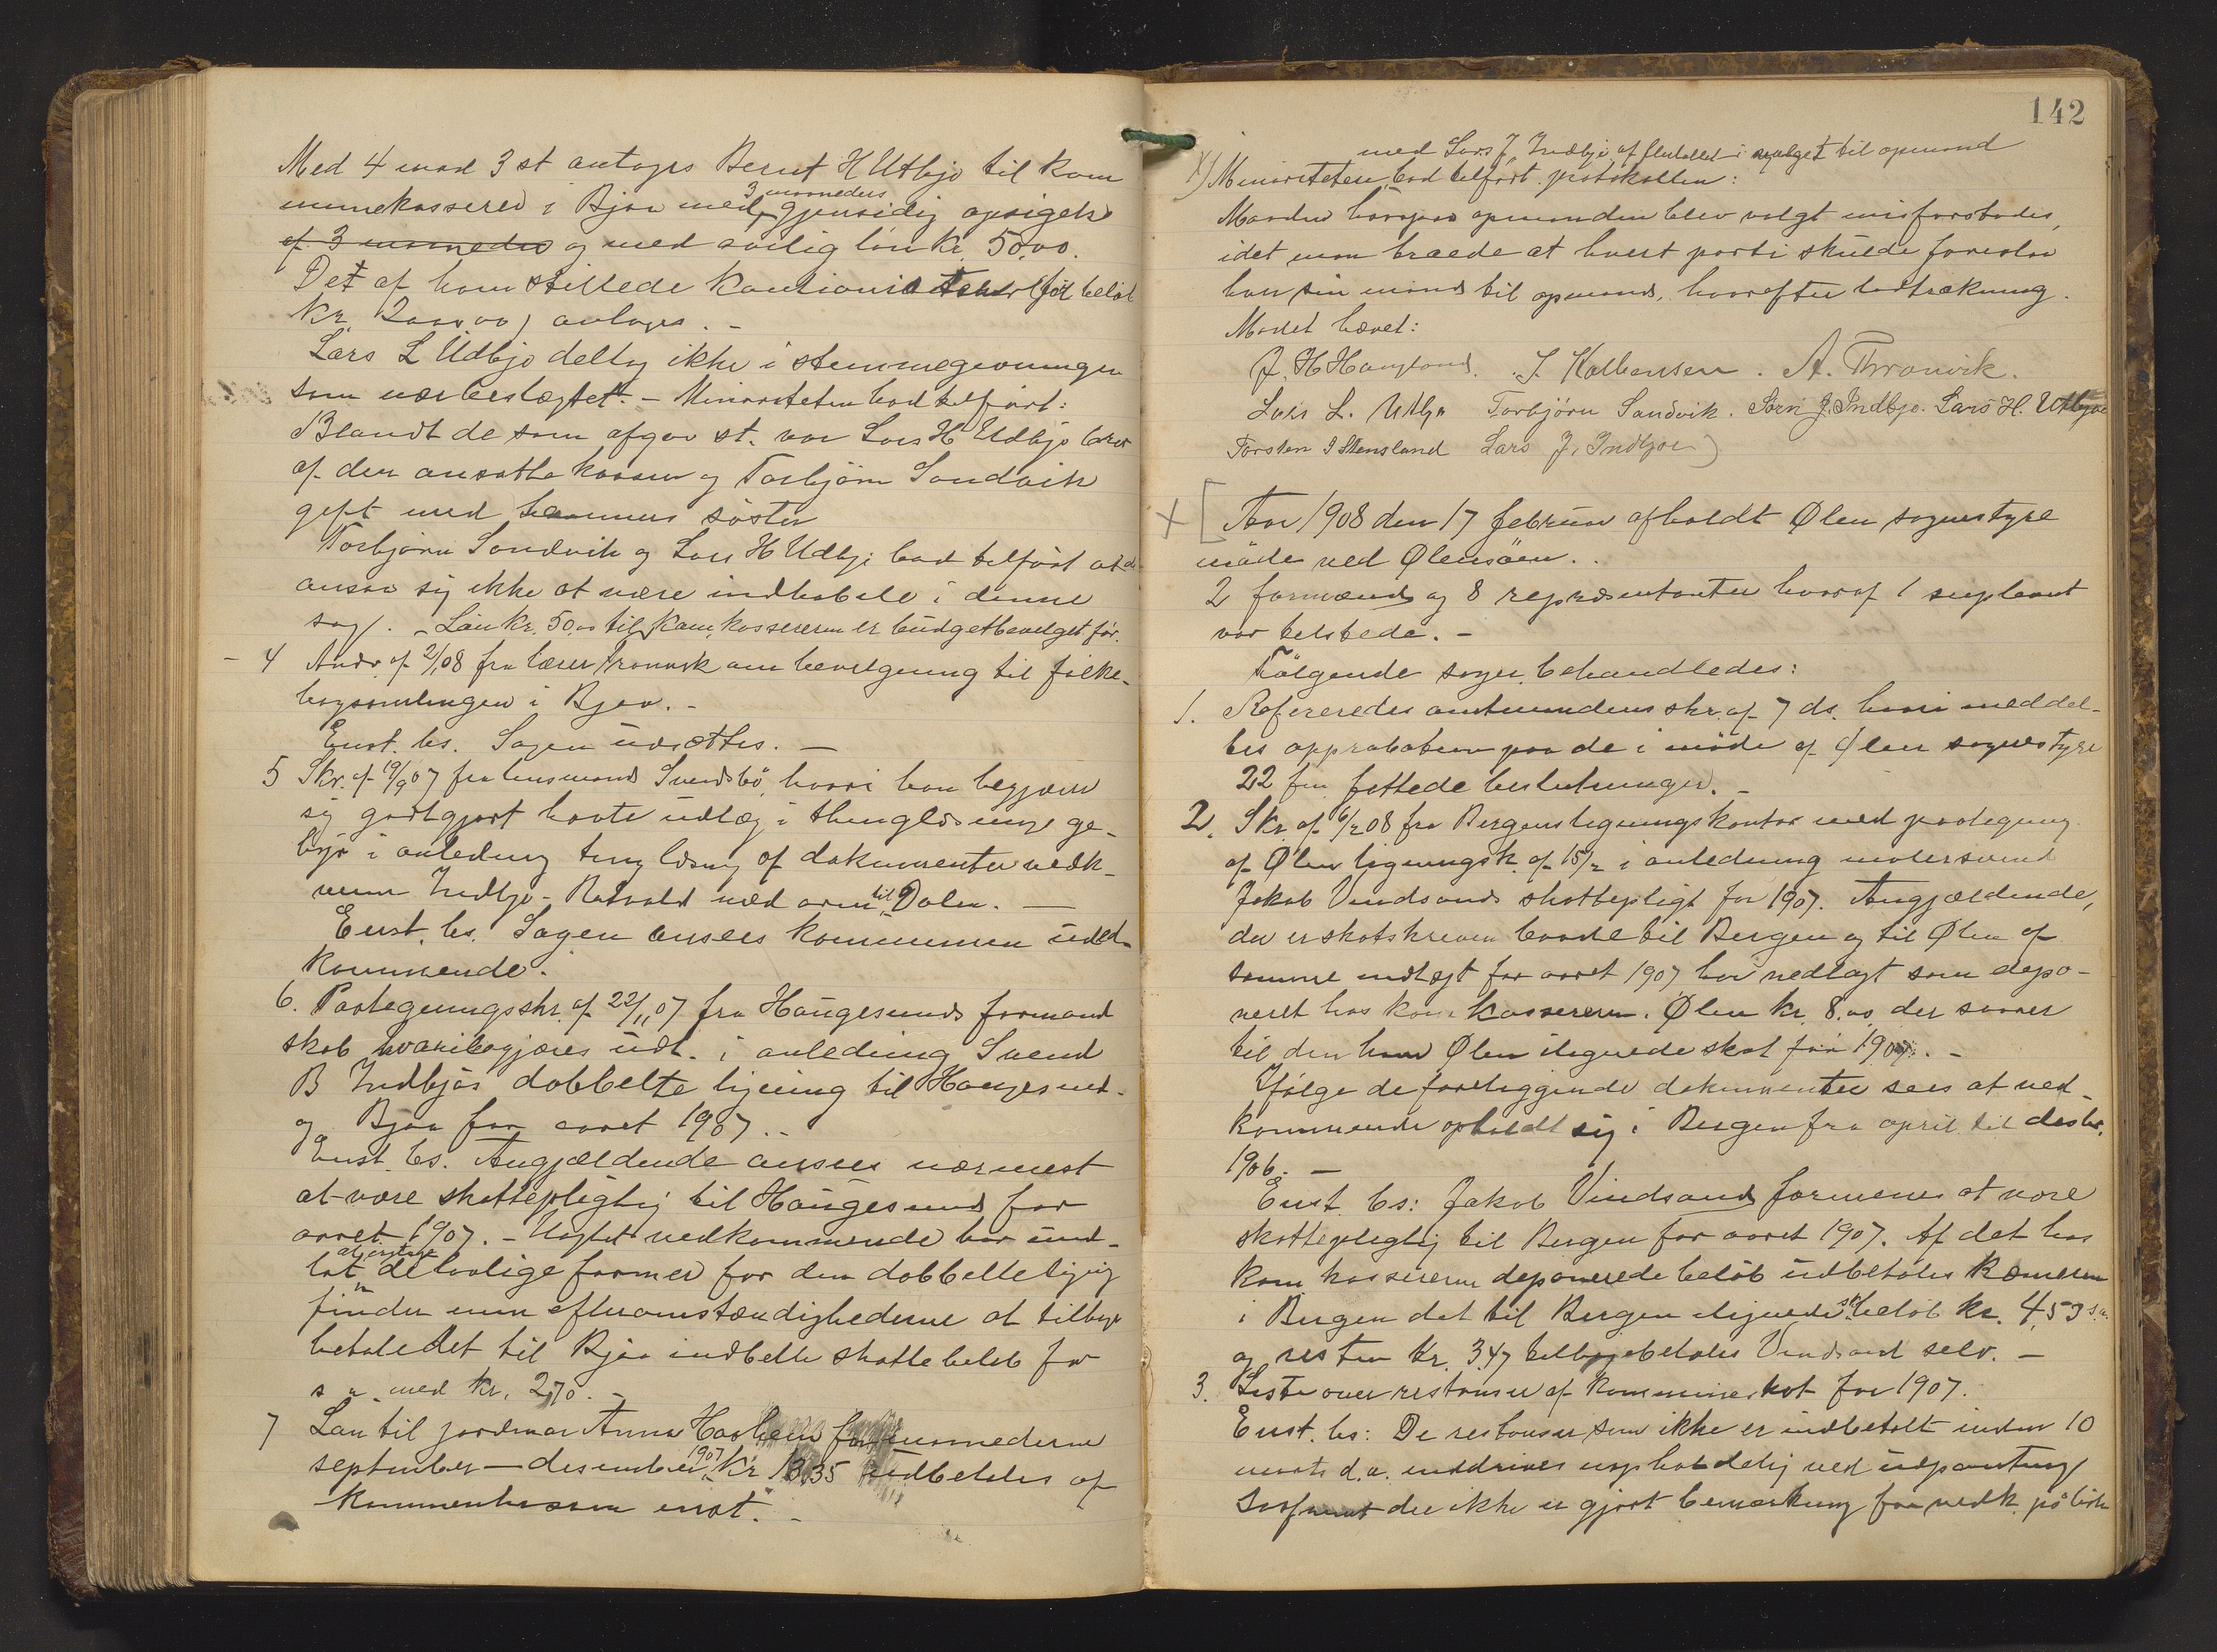 Med 4 mod 3 st antoges Bernt H Utbjo til kom
munekasserer i Bjoa med 3 maaneders gjensidig opsigelse
af 3 maaneder og med aarlig løn kr. 50,00.
Det af ham stillede kautionist for beløb
kr. 2000,00) antoges. -
Lars L Udbjo deltog ikke i stemmegivningen
som nærbeslægtet. - Minoriteten bad tilført:
Blandt de som afgav st. var Lars H Udbjo bror
af den ansatte kasserer og Torbjørn Sandvik
gift med hannes søster
Torbjørn Sandvik og Lars H Udbjo bad tilført at de
ansaa sig ikke at være indhabile i denne
sag. - Løn kr. 50,00 til kom.kassereren er budgetbevilget før.
- 4 Andr. af 2/1 08 fra lærer Tronvik om bevilgning til folke-
bogsamlingen i Bjoa. -
Enst. bs. Sagen udsættes. -
5 Skr. af 19/9 07 fra lensmand Svendsbø, hvori han begjærer
sig godtgjort havte udlæg i thinglæsnings ge-
byr i anledning tinglæsning af dokumenter vedk.
veien Indbjo - Ratvold med arm til Dalen. -
Enst. bs. Sagen ansees kommunen uved-
kommende.
6. Paategningsskr. af 22/11 07 fra Haugesunds formand
skab hvori begjæres udt. i anledning Svend
B Indbjos dobbelte ligning til Haugesund
og Bjoa for aaret 1907. -
Enst. bs. Angjældende ansees nærmest
at være skattepligtig til Haugesund for
aaret 1907. - Uagtet vedkommende har und-
lat at iagttage de lovlige former for den dobbelte ligning
finder man efter omstændighederne at tilbage
betale det til Bjoa indbetalte skattebeløb for
s a med kr. 2,70. -
7 Løn til jordmor Anna Hovheim for maanederne
september - desember 1907 kr 13,35 udbetales af
kommunekassen enst. -
142
med Lars J. Indbjo af flertallet i valget til opmand
x) Minoriteten bad tilført protokollen:
Maaden hvorpaa opmanden blev valgt misforstodes,
idet man troede at hvert parti skulde foreslaa
hver sin mand til opmand, hvorefter lodtrækning.
Mødet hævet:
A. H Haugland. J. Kolbensen. A. Tronvik.
Lars L. Utbjo Torbjørn Sandvik. Søren J. Indbjo. Lars H. Utbjoe
Torsten J Stensland Lars J. Indbjoe
x [ Aar 1908 den 17 februar afholdt Ølen sognestyre
møde ved Ølensøen.
2 formænd og 8 repræsentanter hvoraf 1 supleant
var tilstede. -
Følgende sager behandledes:
1. Refereredes amtmandens skr. af 7 ds. hvori meddel-
tes approbation paa de i møde af Ølen sognestyre
22 fm fattede beslutninger. -
2. Skr af 6/2 08 fra Bergens ligningskontor med paategning
af Ølen ligningsk. af 15/2 i anledning malersvend
Jakob Vindsands skattepligt for 1907. Angjældende,
der er skatskreven baade til Bergen og til Ølen af
samme indtægt for aaret 1907 har nedlagt som depo-
neret hos kom. kassereren. Ølen kr. 8,00 der svarer
til den ham Ølen ilignede skat for 1907. -
Ifølge de foreliggende dokumenter sees at ved-
kommende opholdt sig i Bergen fra april til desbr.
1906. -
Enst. bs: Jakob Vindsand formenes at være
skattepligtig til Bergen for aaret 1907. Af det hos
kom. kassereren deponerede beløb udbetales kæmneren
i Bergen det til Bergen ilignede sk.beløb kr. 4,53 s.a.
og resten kr. 3.47 tilbagebetales Vindsand selv. -
3. Liste over restanser af kommuneskat for 1907.
Enst. bs: De restanser som ikke er indbetalt inden 10
marts d.a. inddrives uopholdelig ved udpantning
saafremt der ikke er gjort bemærkning fra vedk. på listen